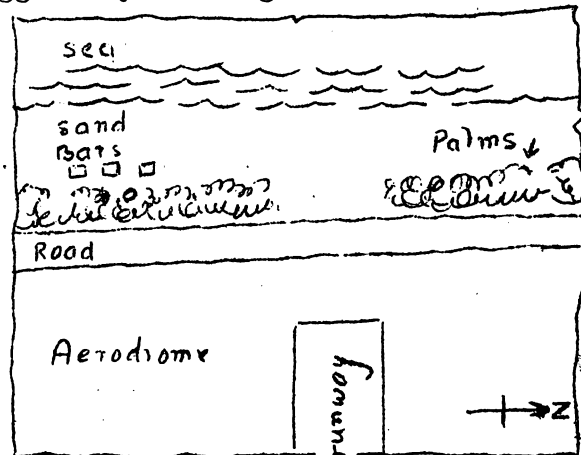 sea
sand
Bars
Palms
Road
Aerodrome
N